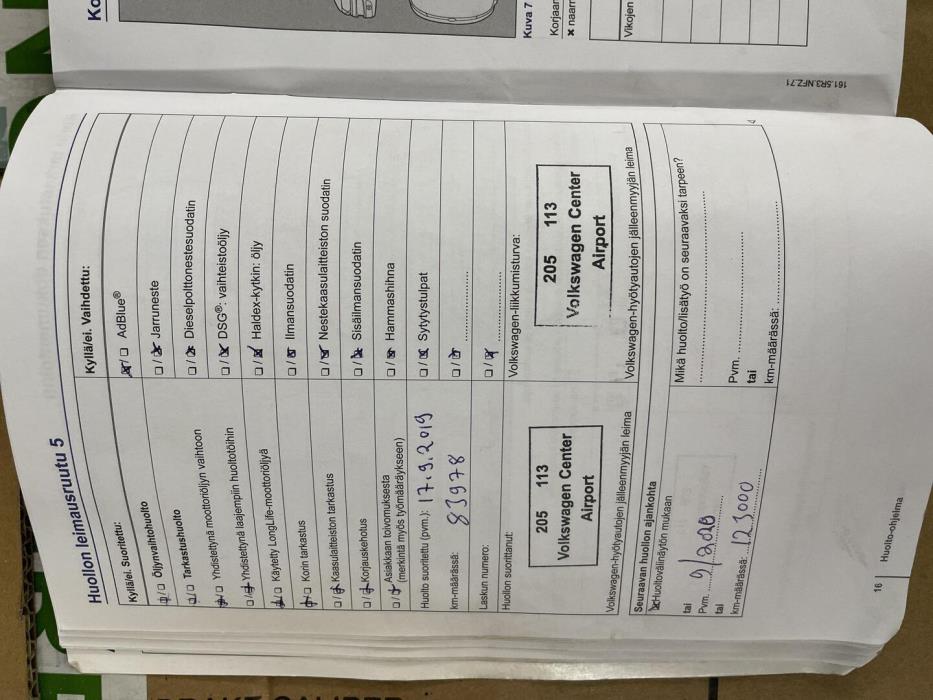 Ko
Kuva 7
Korjaar
× naarn
Vikojen
161.5R3.NFZ.71
Huollon leimausruutu 5
Kyllä/ei. Suoritettu:
Öljynvaihtohuolto
Tarkastushuolto
Yhdistettynä moottoriöljyn vaihtoon
Yhdistettynä laajempiin huoltotöihin
Käytetty LongLife-moottoriöljyä
Korin tarkastus
Kaasulaitteiston tarkastus
Korjauskehotus
Asiakkaan toivomuksesta
(merkintä myös työmääräykseen)
Huolto suoritettu (pvm.): 17.9.2019
km-määrässä: 83978
Laskun numero:
Huollon suorittanut:
205 113
Volkswagen Center
Airport
Volkswagen-hyötyautojen jälleenmyyjän leima
Kyllä/ei. Vaihdettu:
AdBlue®
Jarruneste
Dieselpolttonestesuodatin
DSG®: vaihteistoöljy
Haldex-kytkin: öljy
Ilmansuodatin
Nestekaasulaitteiston suodatin
Sisäilmansuodatin
Hammashihna
Sytytystulpat
Volkswagen-liikkumisturva:
205 113
Volkswagen Center
Airport
Volkswagen-hyötyautojen jälleenmyyjän leima
Seuraavan huollon ajankohta
Huoltovälinäytön mukaan
tai
Pvm. 9/2020
tai
km-määrässä: 123000
Mikä huolto/lisätyö on seuraavaksi tarpeen?
Pvm.
tai
km-määrässä:
16 Huolto-ohjelma